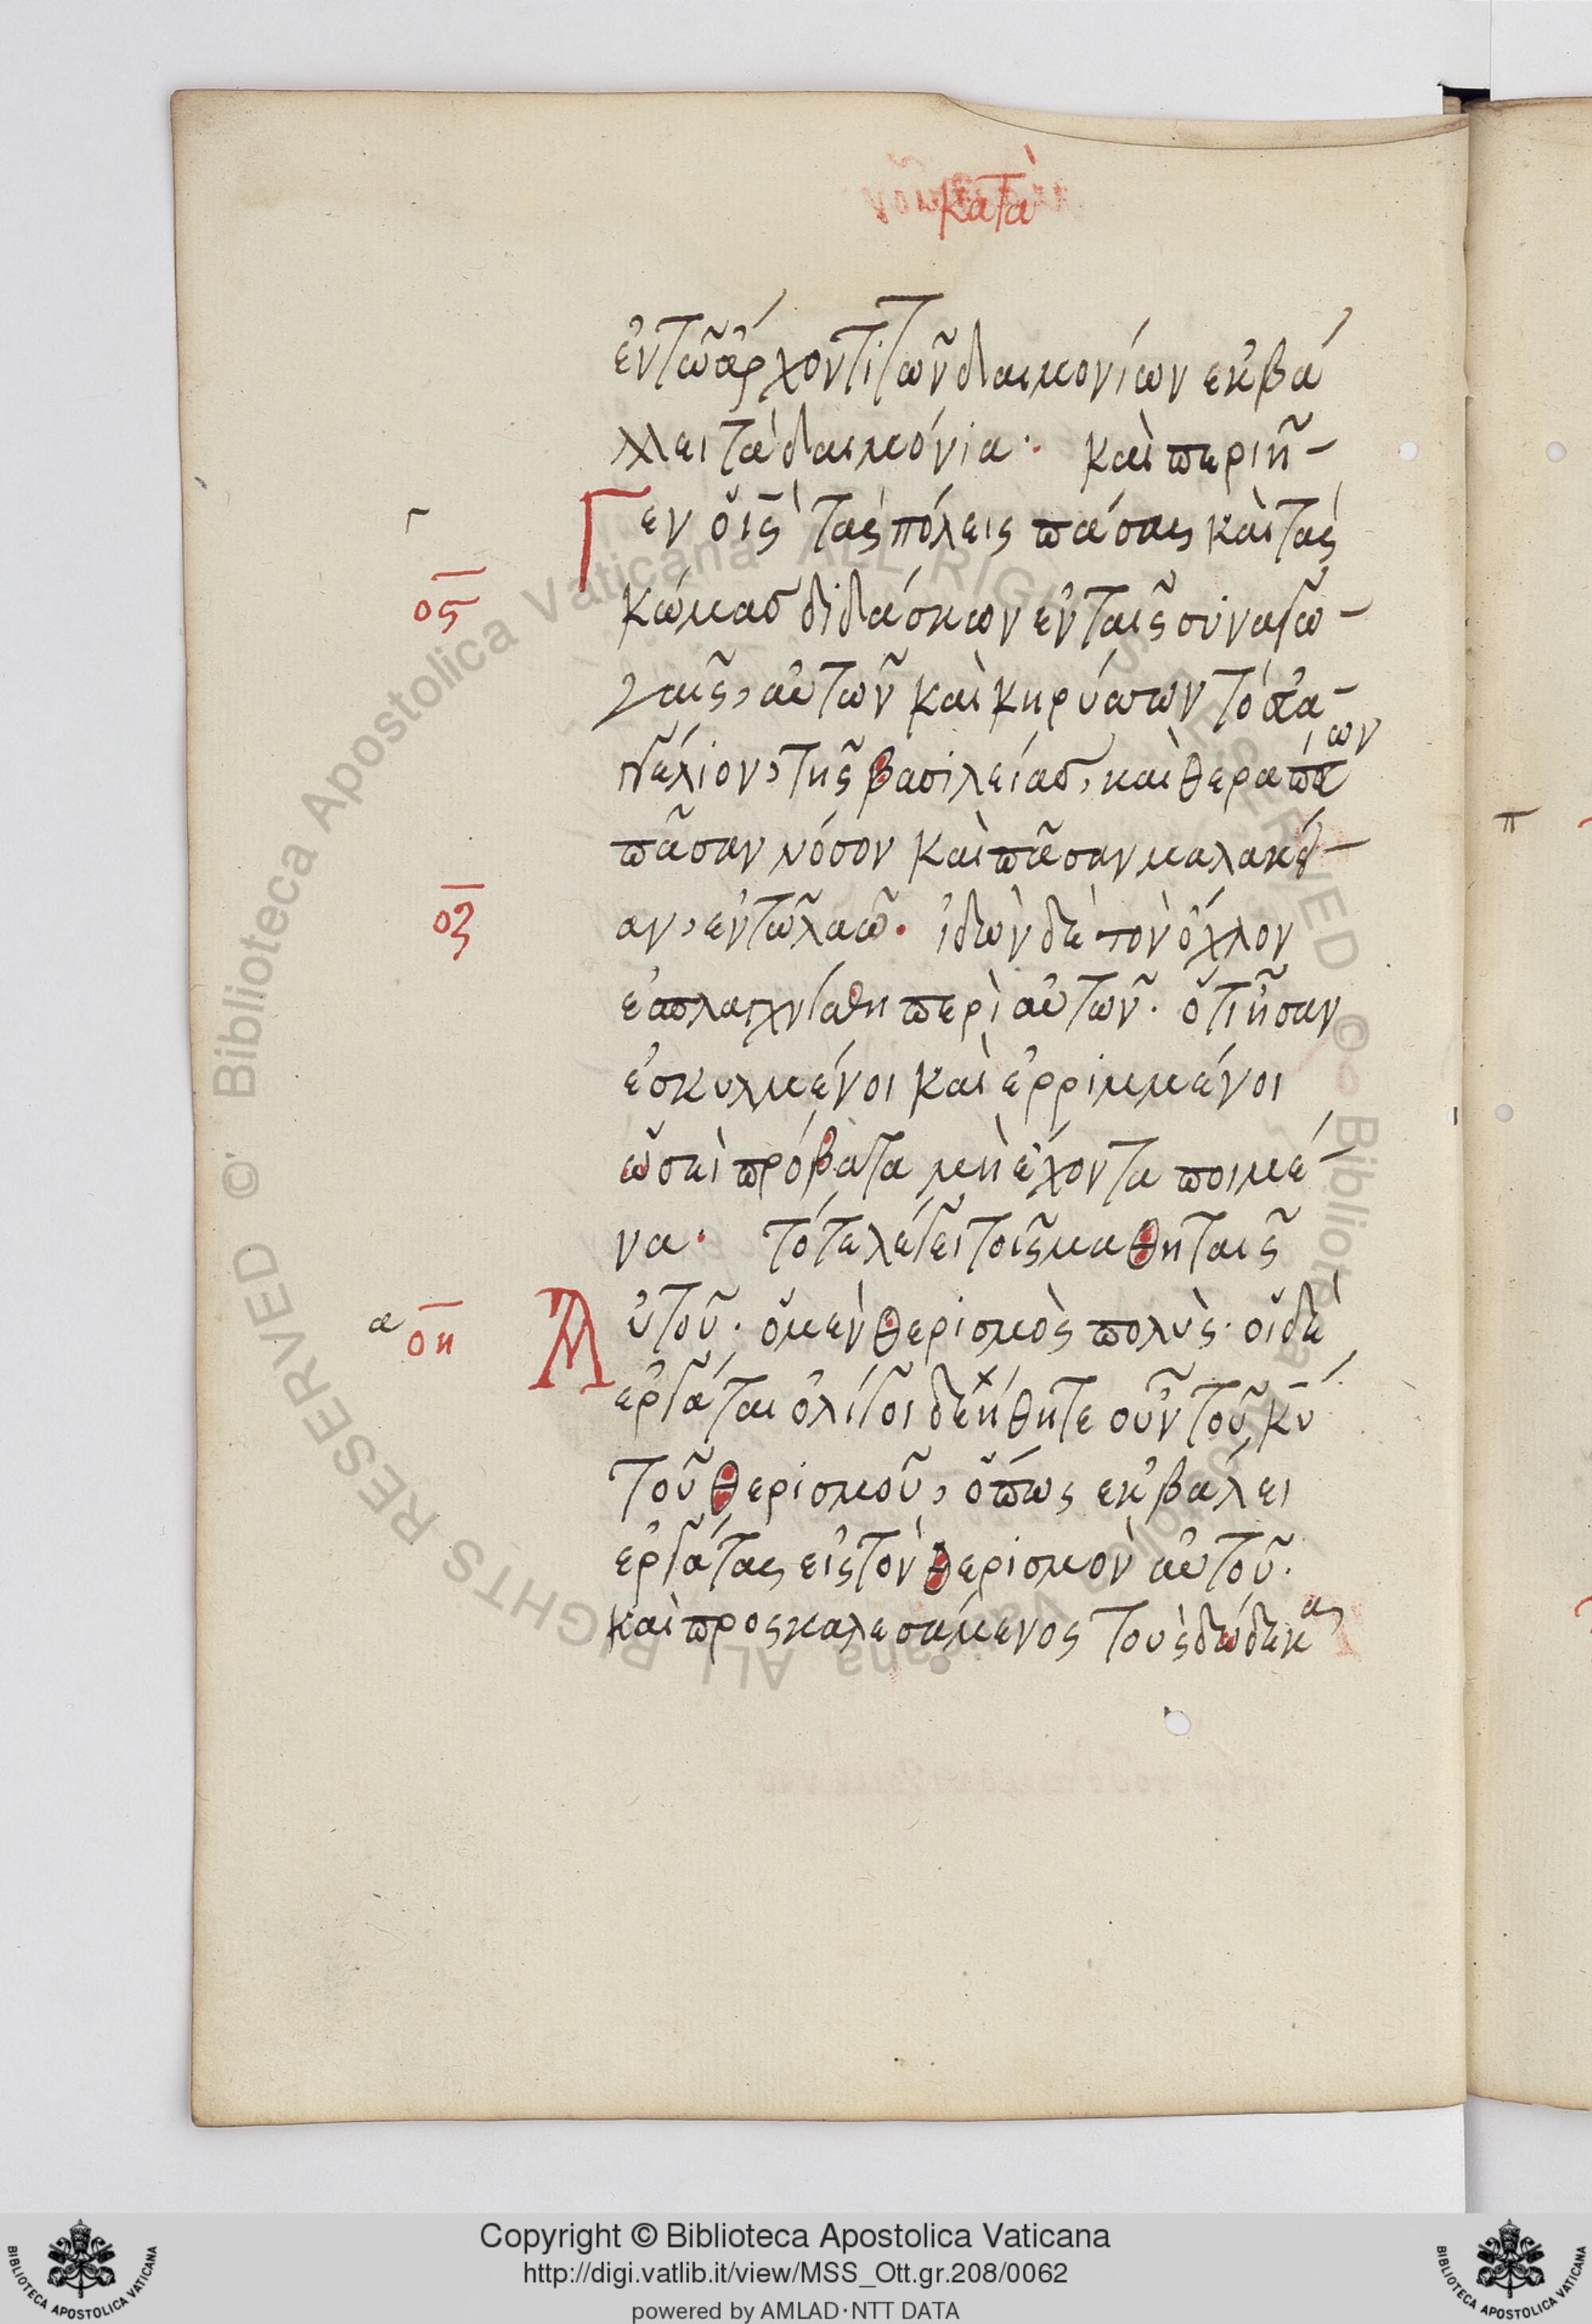 κατὰ
ἐν τῶ ἄρχοντι τῶν δαιμονίων ἐκβά
λλει τὰ δαιμόνια· καὶ περιῆ-
Γεν ὁ ις̅ τὰς πόλεις πάσας καὶ τὰς
Γ
ος̅
κώμασ διδάσκων ἐν ταῖς συναγω-
γαῖς, αὐτῶν καὶ κηρύσσων τὸ εὐα-
γγέλιον, τῆς βασιλείασ, καὶ θεραπεύων
πᾶσαν νόσον καὶ πᾶσαν μαλακεί-
οζ̅
αν, ἐν τῶ λαῶ· ἰδὼν δὲ τὸν ὄχλον
ἐσπλαγχνίσθη περὶ αὐτῶν· ὅτι ἦσαν
ἐσκυλμένοι καὶ ἐρριμμένοι
ὡσεὶ πρόβατα μὴ ἔχοντα ποιμέ-
να· τότε λέγει τοῖς μαθηταῖς
α
οη̅
Αὐτοῦ· ὁ μὲν θερισμὸς πολὺς· οἱ δὲ
ἐργάται ὀλίγοι δεήθητε οὖν τοῦ κ̅υ̅
τοῦ θερισμοῦ, ὅπως ἐκβάλει
ἐργάτας εἰς τὸν θερισμὸν αὐτοῦ·
καὶ προςκαλεσάμενος τοὺς δώδεκα
π
Copyright © Biblioteca Apostolica Vaticana
http://digi.vatlib.it/view/MSS_Ott.gr.208/0062
powered by AMLAD·NTT DATA
BIBLIOTECA APOSTOLICA VATICANA
BIBLIOTECA APOSTOLICA VATICANA
© Biblioteca Apostolica Vaticana ALL RIGHTS RESERVED © Biblioteca Apostolica Vaticana ALL RIGHTS RESERVED